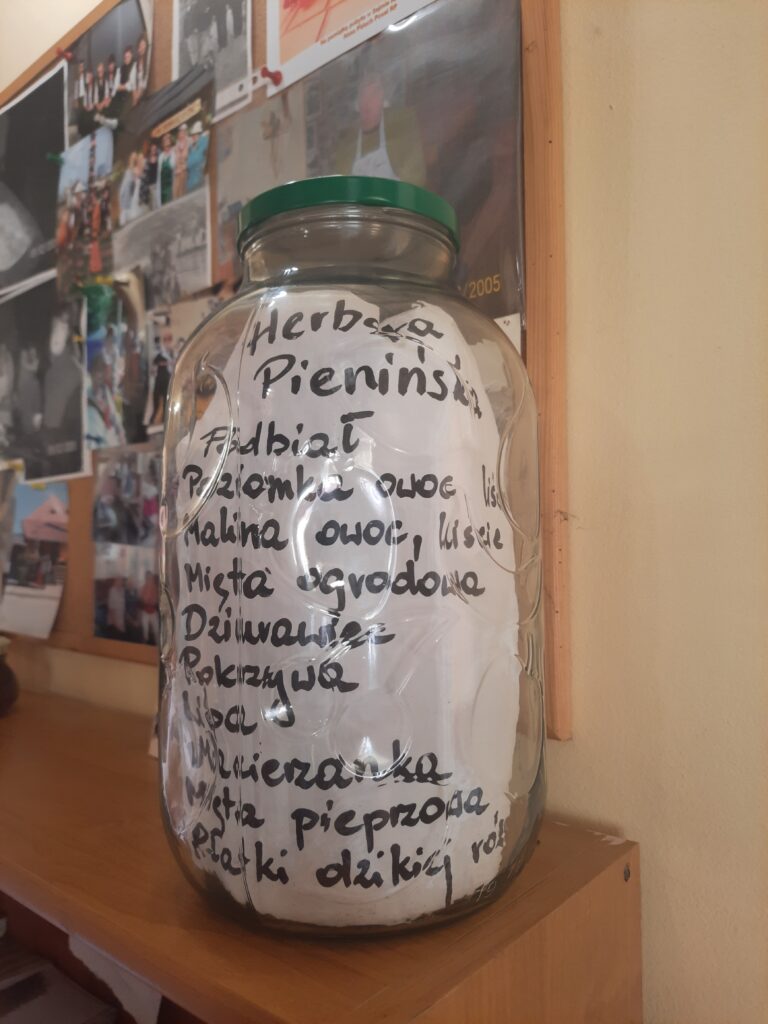 Herbata
Pienińska
Podbiał
Poziomka owoc liść
Malina owoc, liście
Mięta ogrodowa
Dziurawiec
Pokrzywa
Lipa
Macierzanka
Mięta pieprzowa
Płatki dzikiej róży
/2005